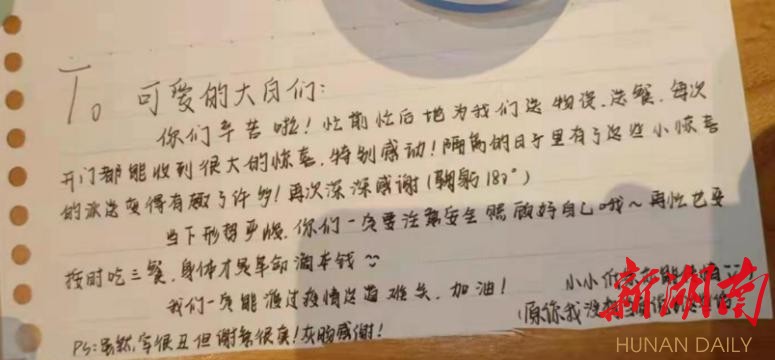 To 可爱的大白们:
你们辛苦啦!忙前忙后地为我们送物资、送餐,每次
开门都能收到很大的惊喜,特别感动!隔离的日子里有了这些小惊喜
的派送变得有趣了许多!再次深深感谢(鞠躬180°)
当下形势严峻,你们一定要注意安全照顾好自己哦~再忙也要
按时吃三餐,身体才是革命的本钱
我们一定能渡过疫情这道难关,加油! 小小
(原谅我没
PS:虽然字很丑但谢意很真!灰胸感谢!
新湖南
HUNAN DAILY